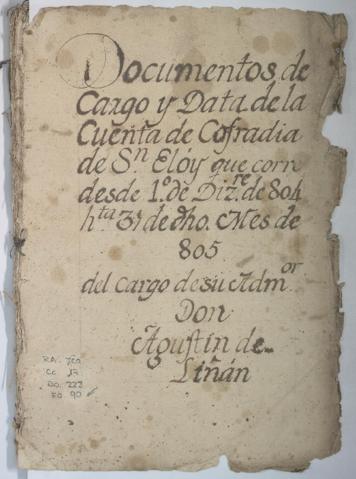 Documentos, de
Cargo y Data de la
Cuenta de Cofradia
de Sn. Elóy que corre
desde 1.º de Dizre. de 804
hta 31 de dho. Mes de
805
del cargo de su Admor
Don
Agustin de
Liñán
Co. 17
Do. 222
Fo. 90